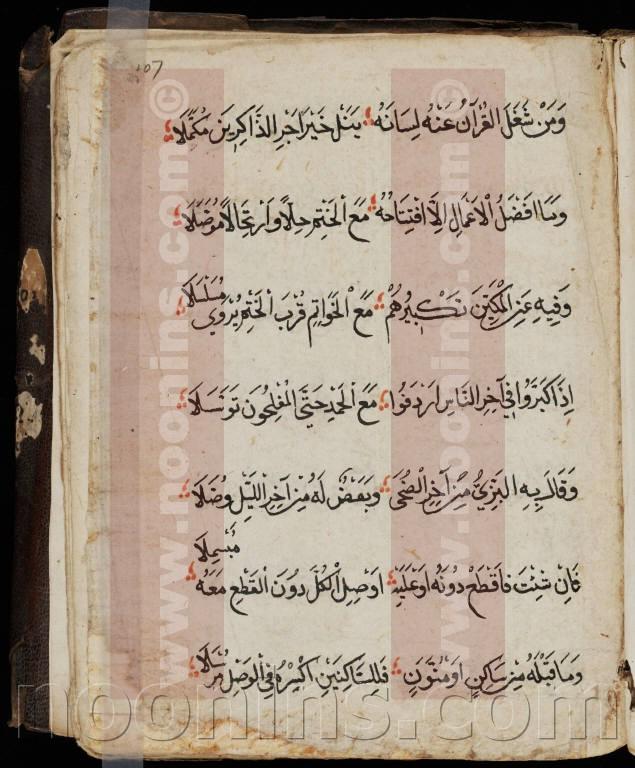 107
وَمَنْ شَغَلَ القُرْآنُ عَنْهُ لِسَانَهُ ؛ يَنَلْ خَيْرَ اَجْرِ الذَّاكِرِينَ مُكَمَّلَا
وَمَا اَفْضَلُ الْاَعْمَالِ اِلَّا افْتِتَاحُهُ ؛ مَعَ الْخَتْمِ حِلًّا وَارْتِحَالًا مُوَصَّلَا
وَفِيهِ عَنِ الْمَكِّينَ تَكْبِيرُهُمْ ؛ مَعَ الْخَوَاتِمِ قُرْبَ الْخَتْمِ يُرْوَى مُسَلْسَلَا
اِذَا كَبَّرُوا فِي آخِرِ النَّاسِ اَرْدَفُوا ؛ مَعَ الْحَمْدِ حَتَّى الْمُفْلِحُونَ تَوَسُّلَا
وَقَالَ بِهِ الْبَزِّيُّ مِنْ آخِرِ الضُّحَى ؛ وَبَعْضٌ لَهُ مِنْ آخِرِ اللَّيْلِ وَصَّلَا
فَاِنْ شِئْتَ فَاقْطَعْ دُونَهُ اَوْ عَلَيْهِ ؛ اَوْ صِلِ الْكُلَّ دُونَ الْقَطْعِ مَعَهُ مُبَسْمِلَا
وَمَا قَبْلَهُ مِنْ سَاكِنٍ اَوْ مُنَوَّنٍ ؛ فَلِلسَّاكِنَيْنِ اكْسِرْهُ فِي الْوَصْلِ مُرْسَلَا
© www.noonins.com
© www.noonins.com
noonins.com